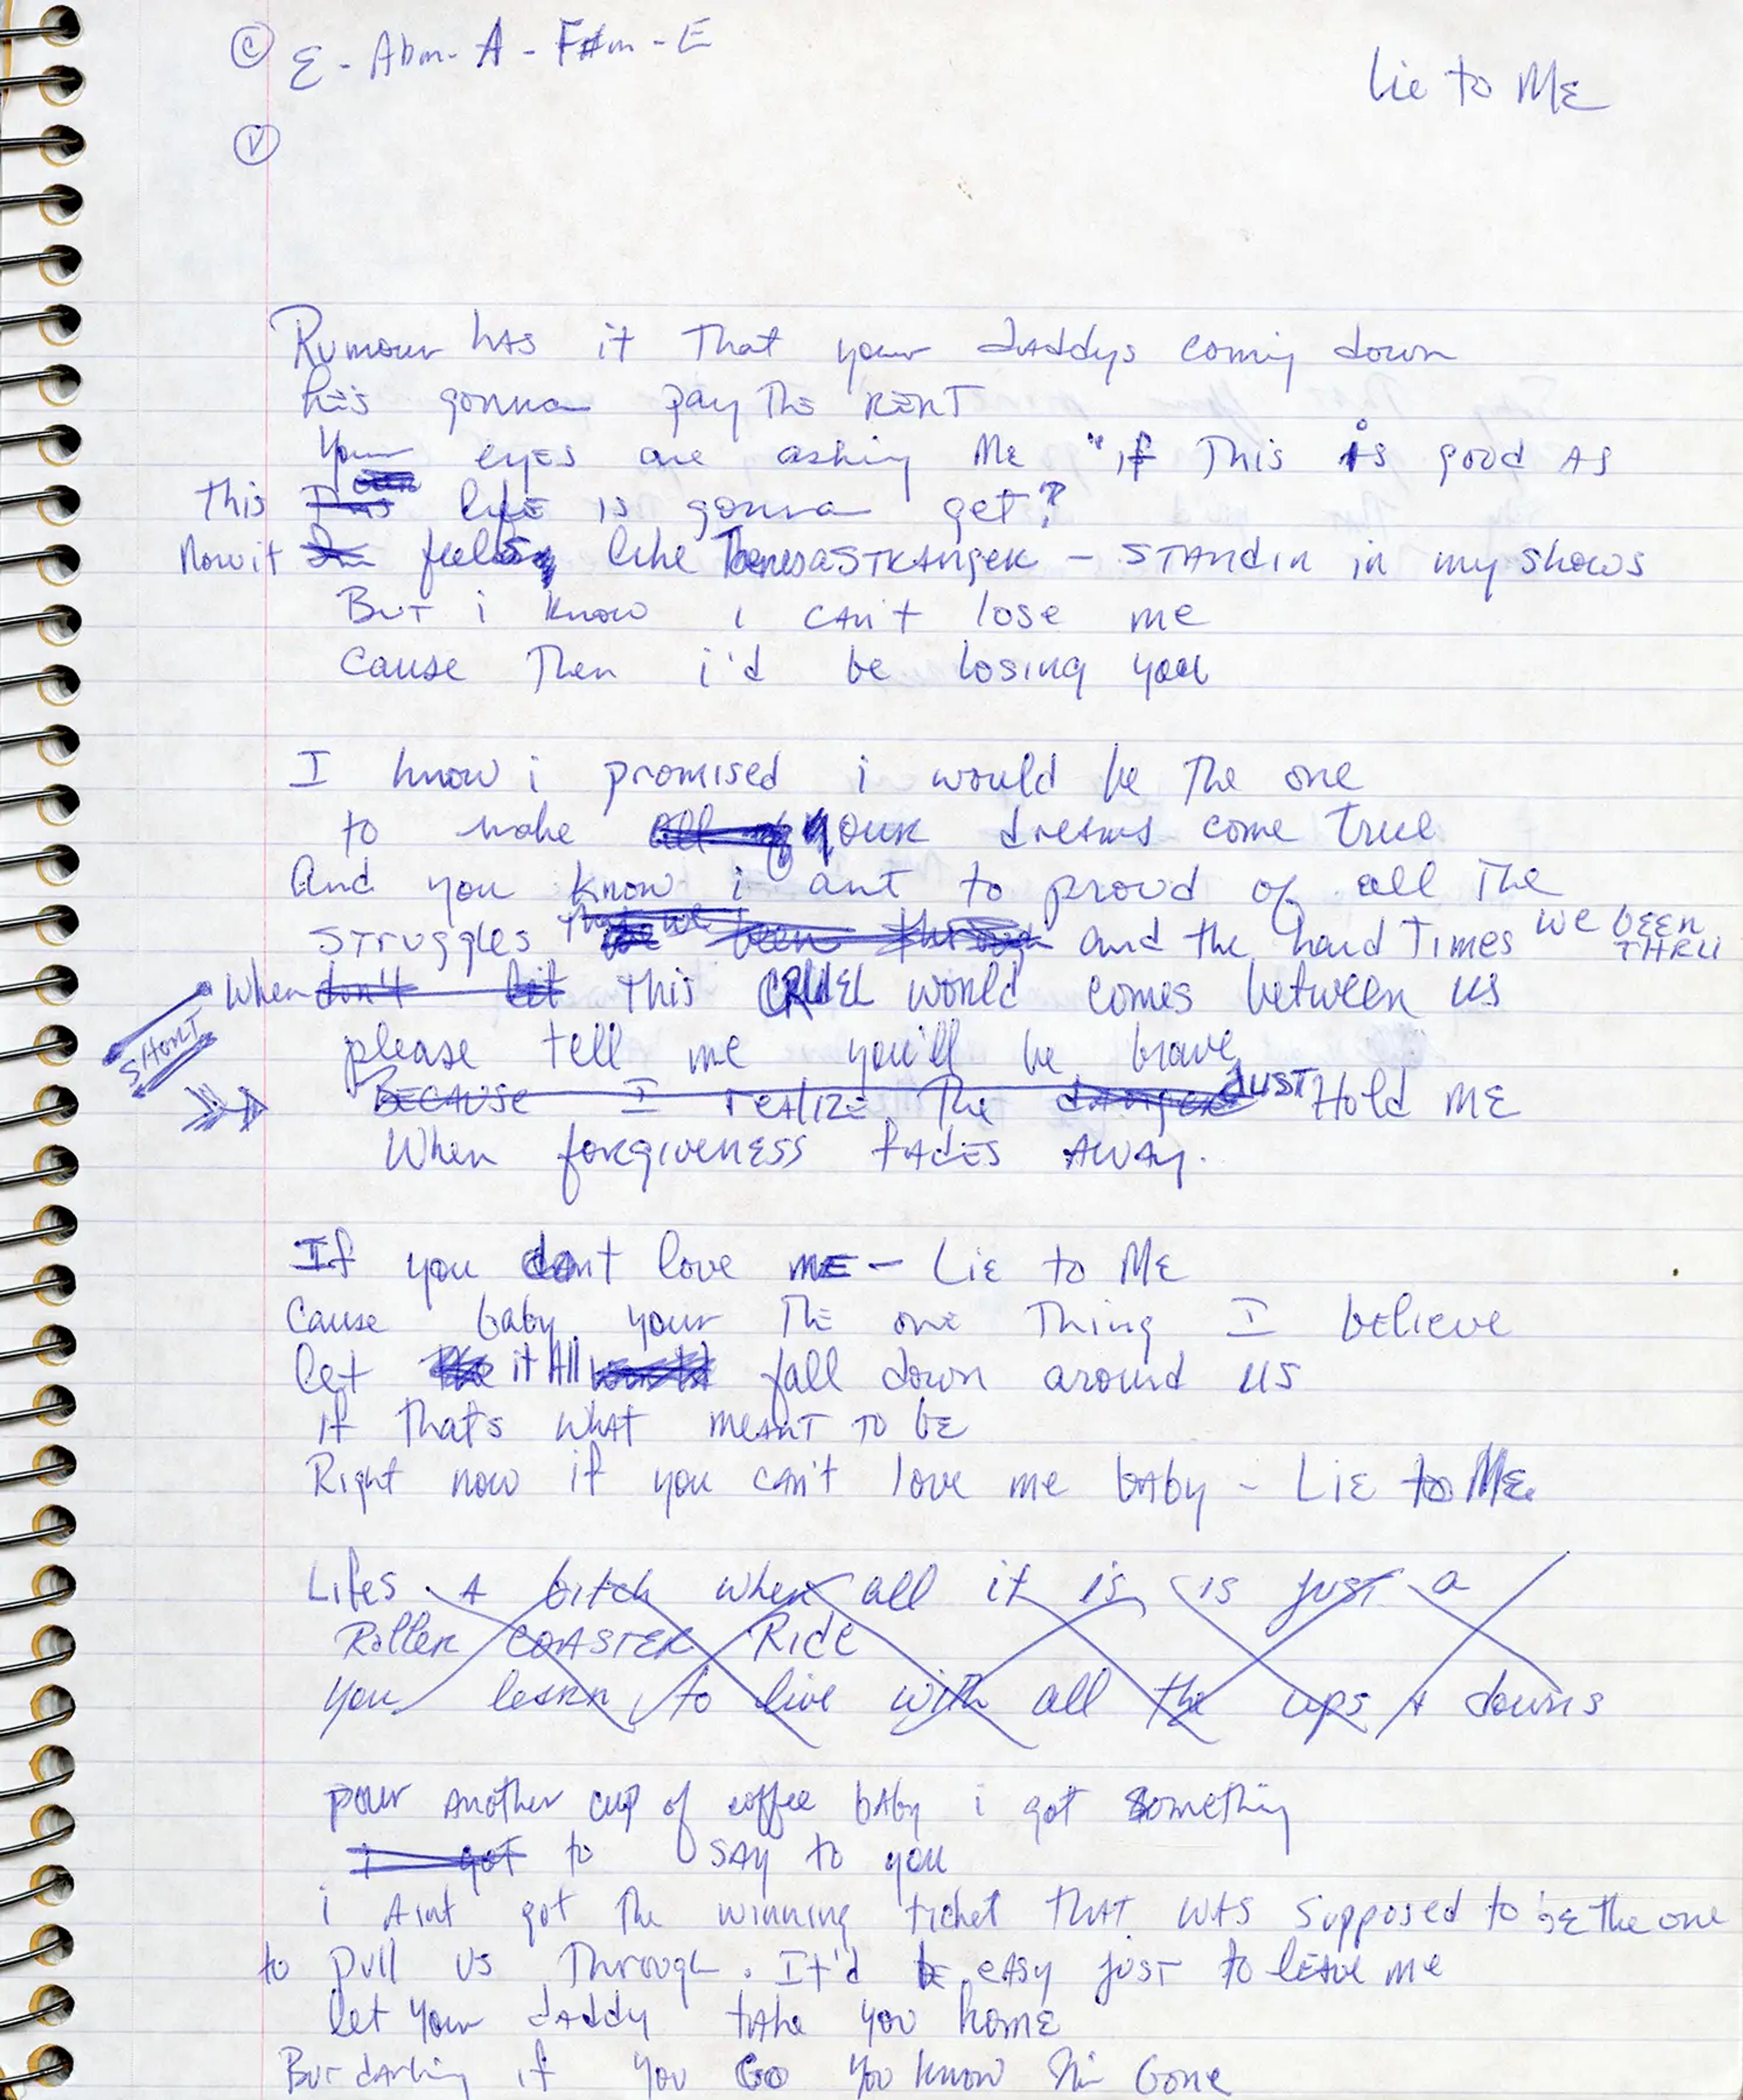 © E - Abm - A - F#m - E
Lie to Me
Ⓥ
Rumour has it That your daddys coming down
he's gonna pay The RENT
Your eyes are asking Me "if This is good as
This life is gonna get?
Now it feels like Theres a STRANGER - STANDIN in my shoes
BUT i know i can't lose me
Cause Then i'd be losing you
I know i promised i would be The one
to make all of your dreams come True
And you know i ant to proud of all The
STruggles That we been through and the hard Times we been
THRU
When don't let This CRUEL world comes between us
SHORT
please tell me you'll be brave
BECAUSE I realize The danger JUST Hold ME
When forgiveness fades away.
If you dont love ME - Lie to Me
Cause baby your The one Thing I believe
let it All fall down around us
if that's what meant TO be
Right now if you can't love me baby - Lie to Me.
Lifes A bitch when all it is, is just a
Roller COASTER Ride
You learn to live with all the ups + downs
pour another cup of coffee baby i got something
i got to say to you
i Aint got The winning ticket THAT WAS supposed to be the one
to pull us Through. It'd be easy just to leave me
let your daddy take you home
But darling if you Go you know I'm Gone